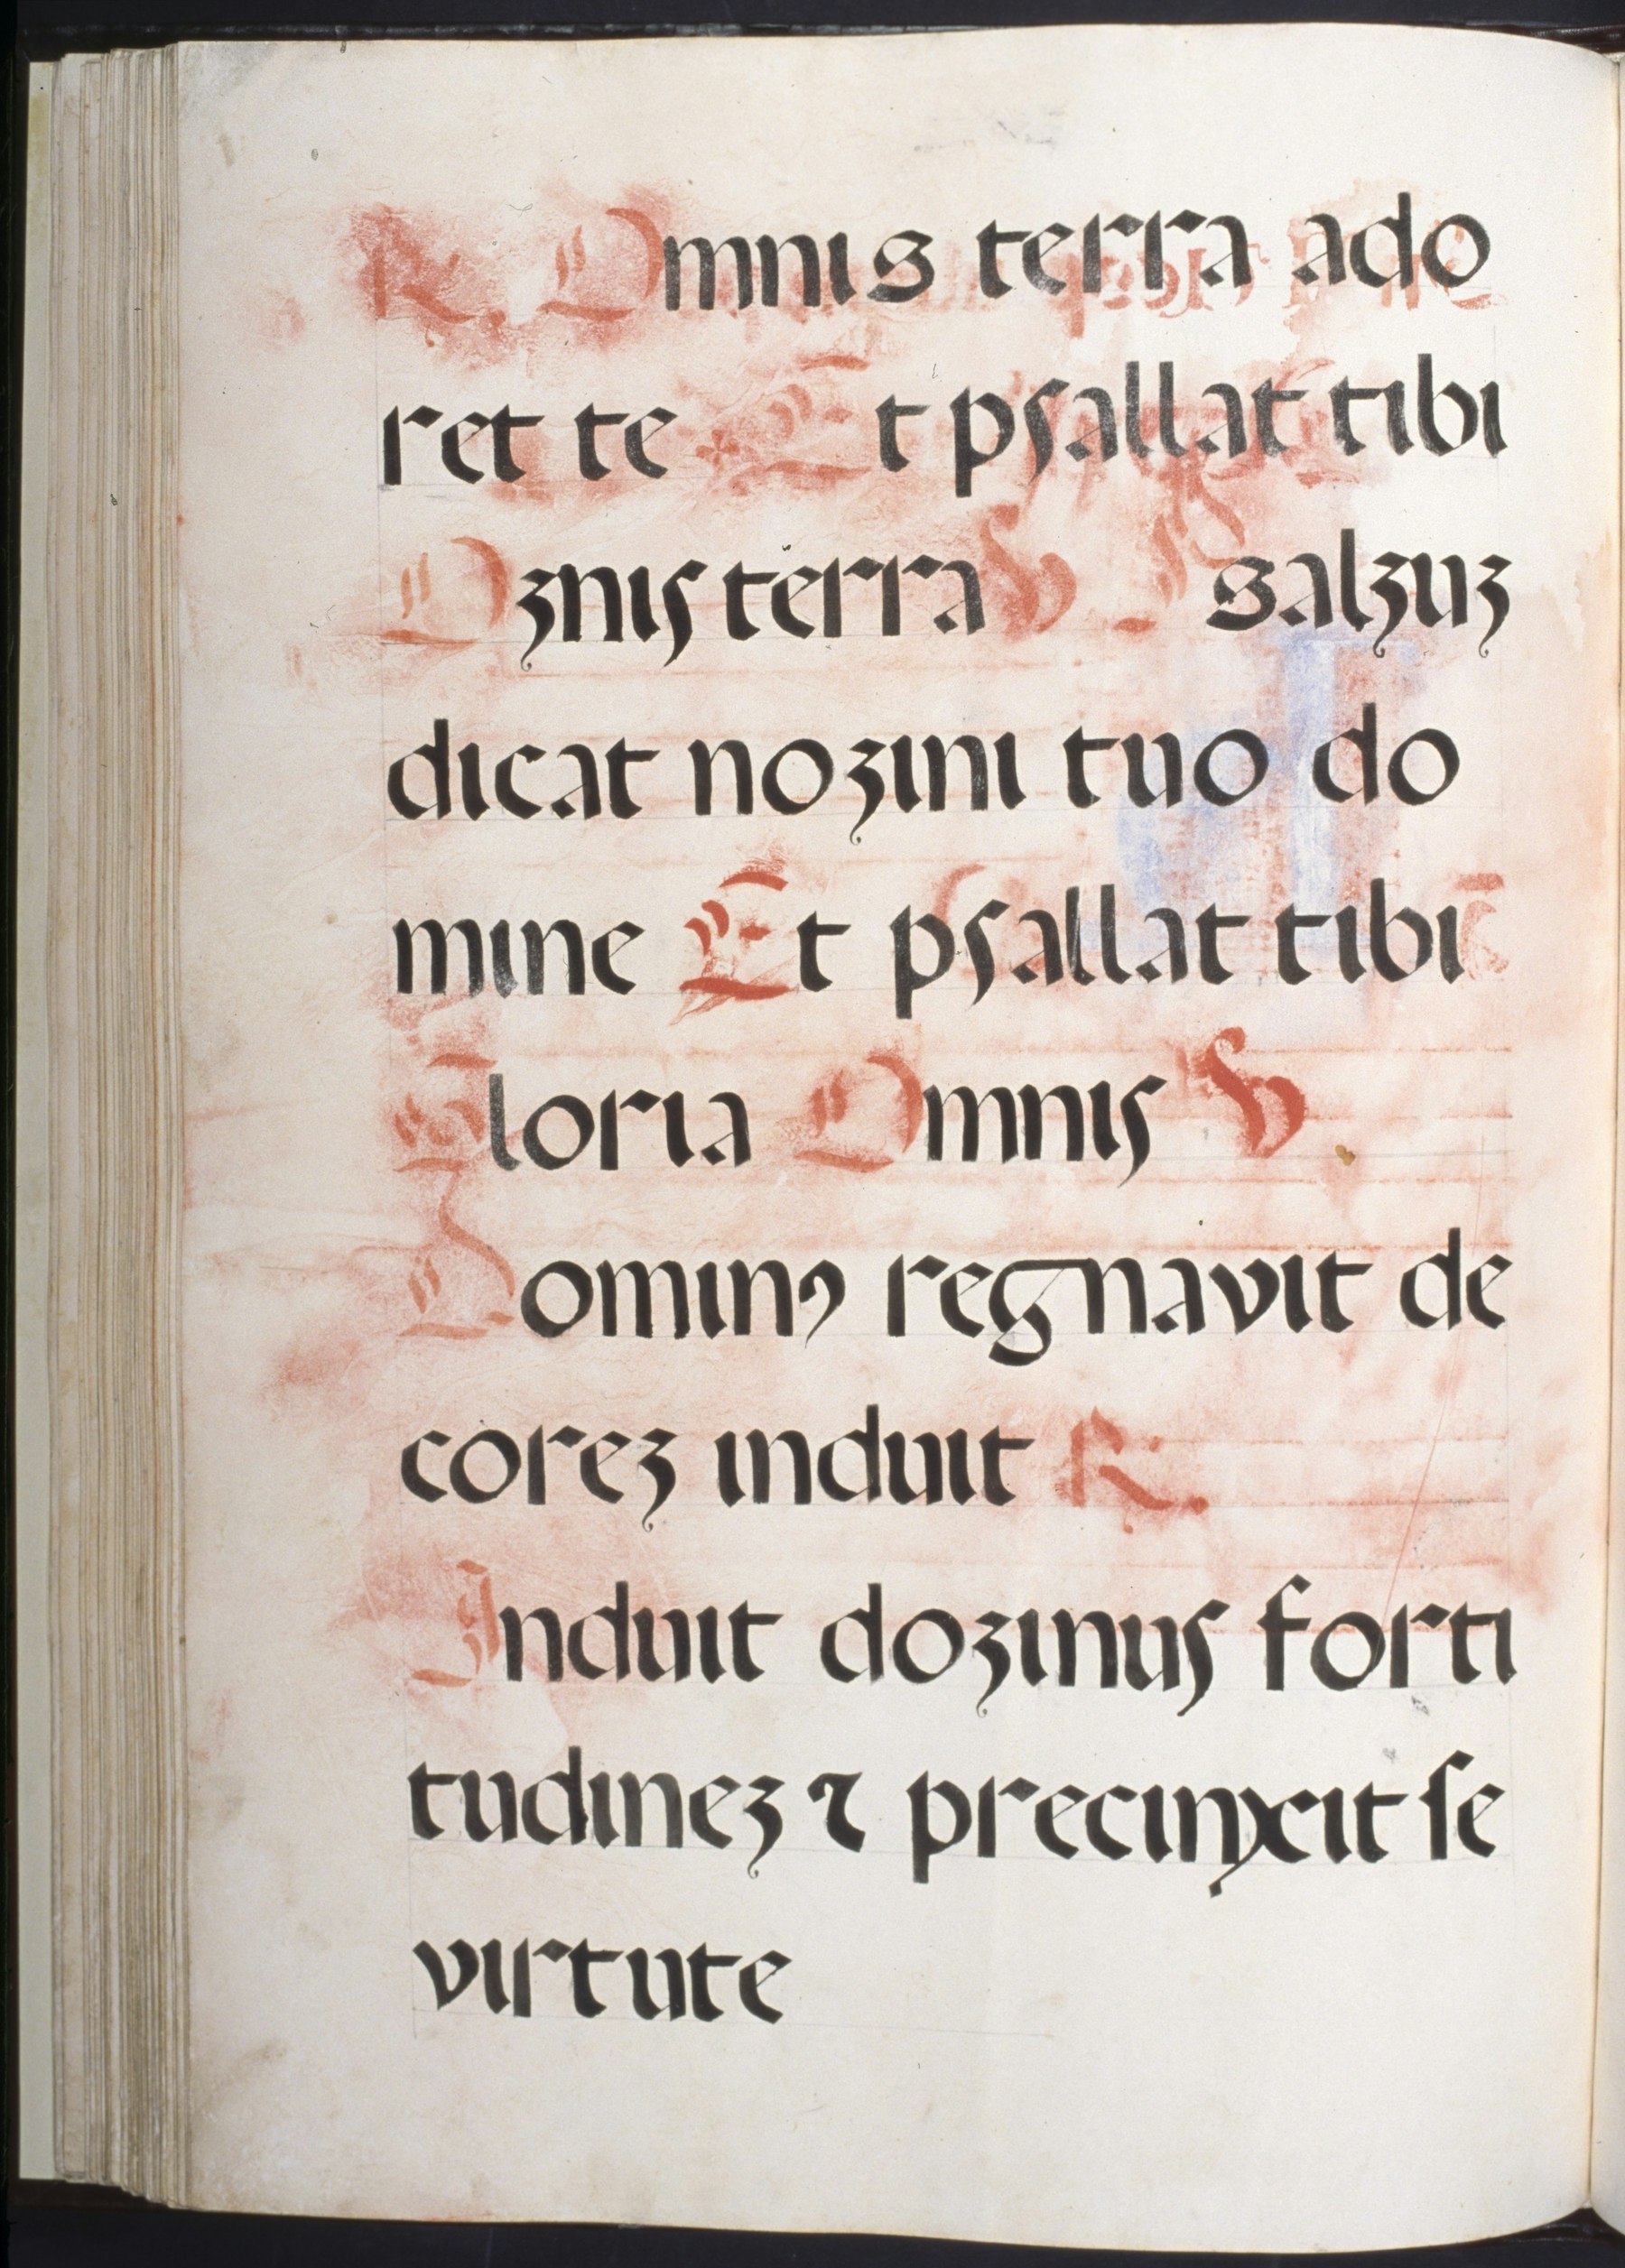 R. Omnis terra ado
ret te Et psallat tibi
Oʒnis terra V. Psalʒuʒ
dicat noʒini tuo do
mine Et psallat tibi
Gloria Omnis V
Dominꝯ regnavit de
coreʒ induit R.
Induit doʒinus forti
tudineʒ ⁊ precinxit se
virtute